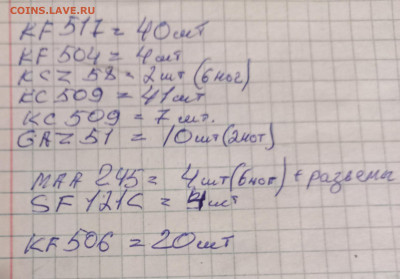 COINS.LAVE.RU
KF 517 = 40шт
KF 504 = 4шт
KCZ 58 = 2шт (6ног)
KC 509 = 41шт
KC 509 = 7шт.
GAZ 51 = 10шт (2ног)
MAA 245 = 4шт (6ног) + разъемы
SF 121C = 4шт
KF 506 = 20шт